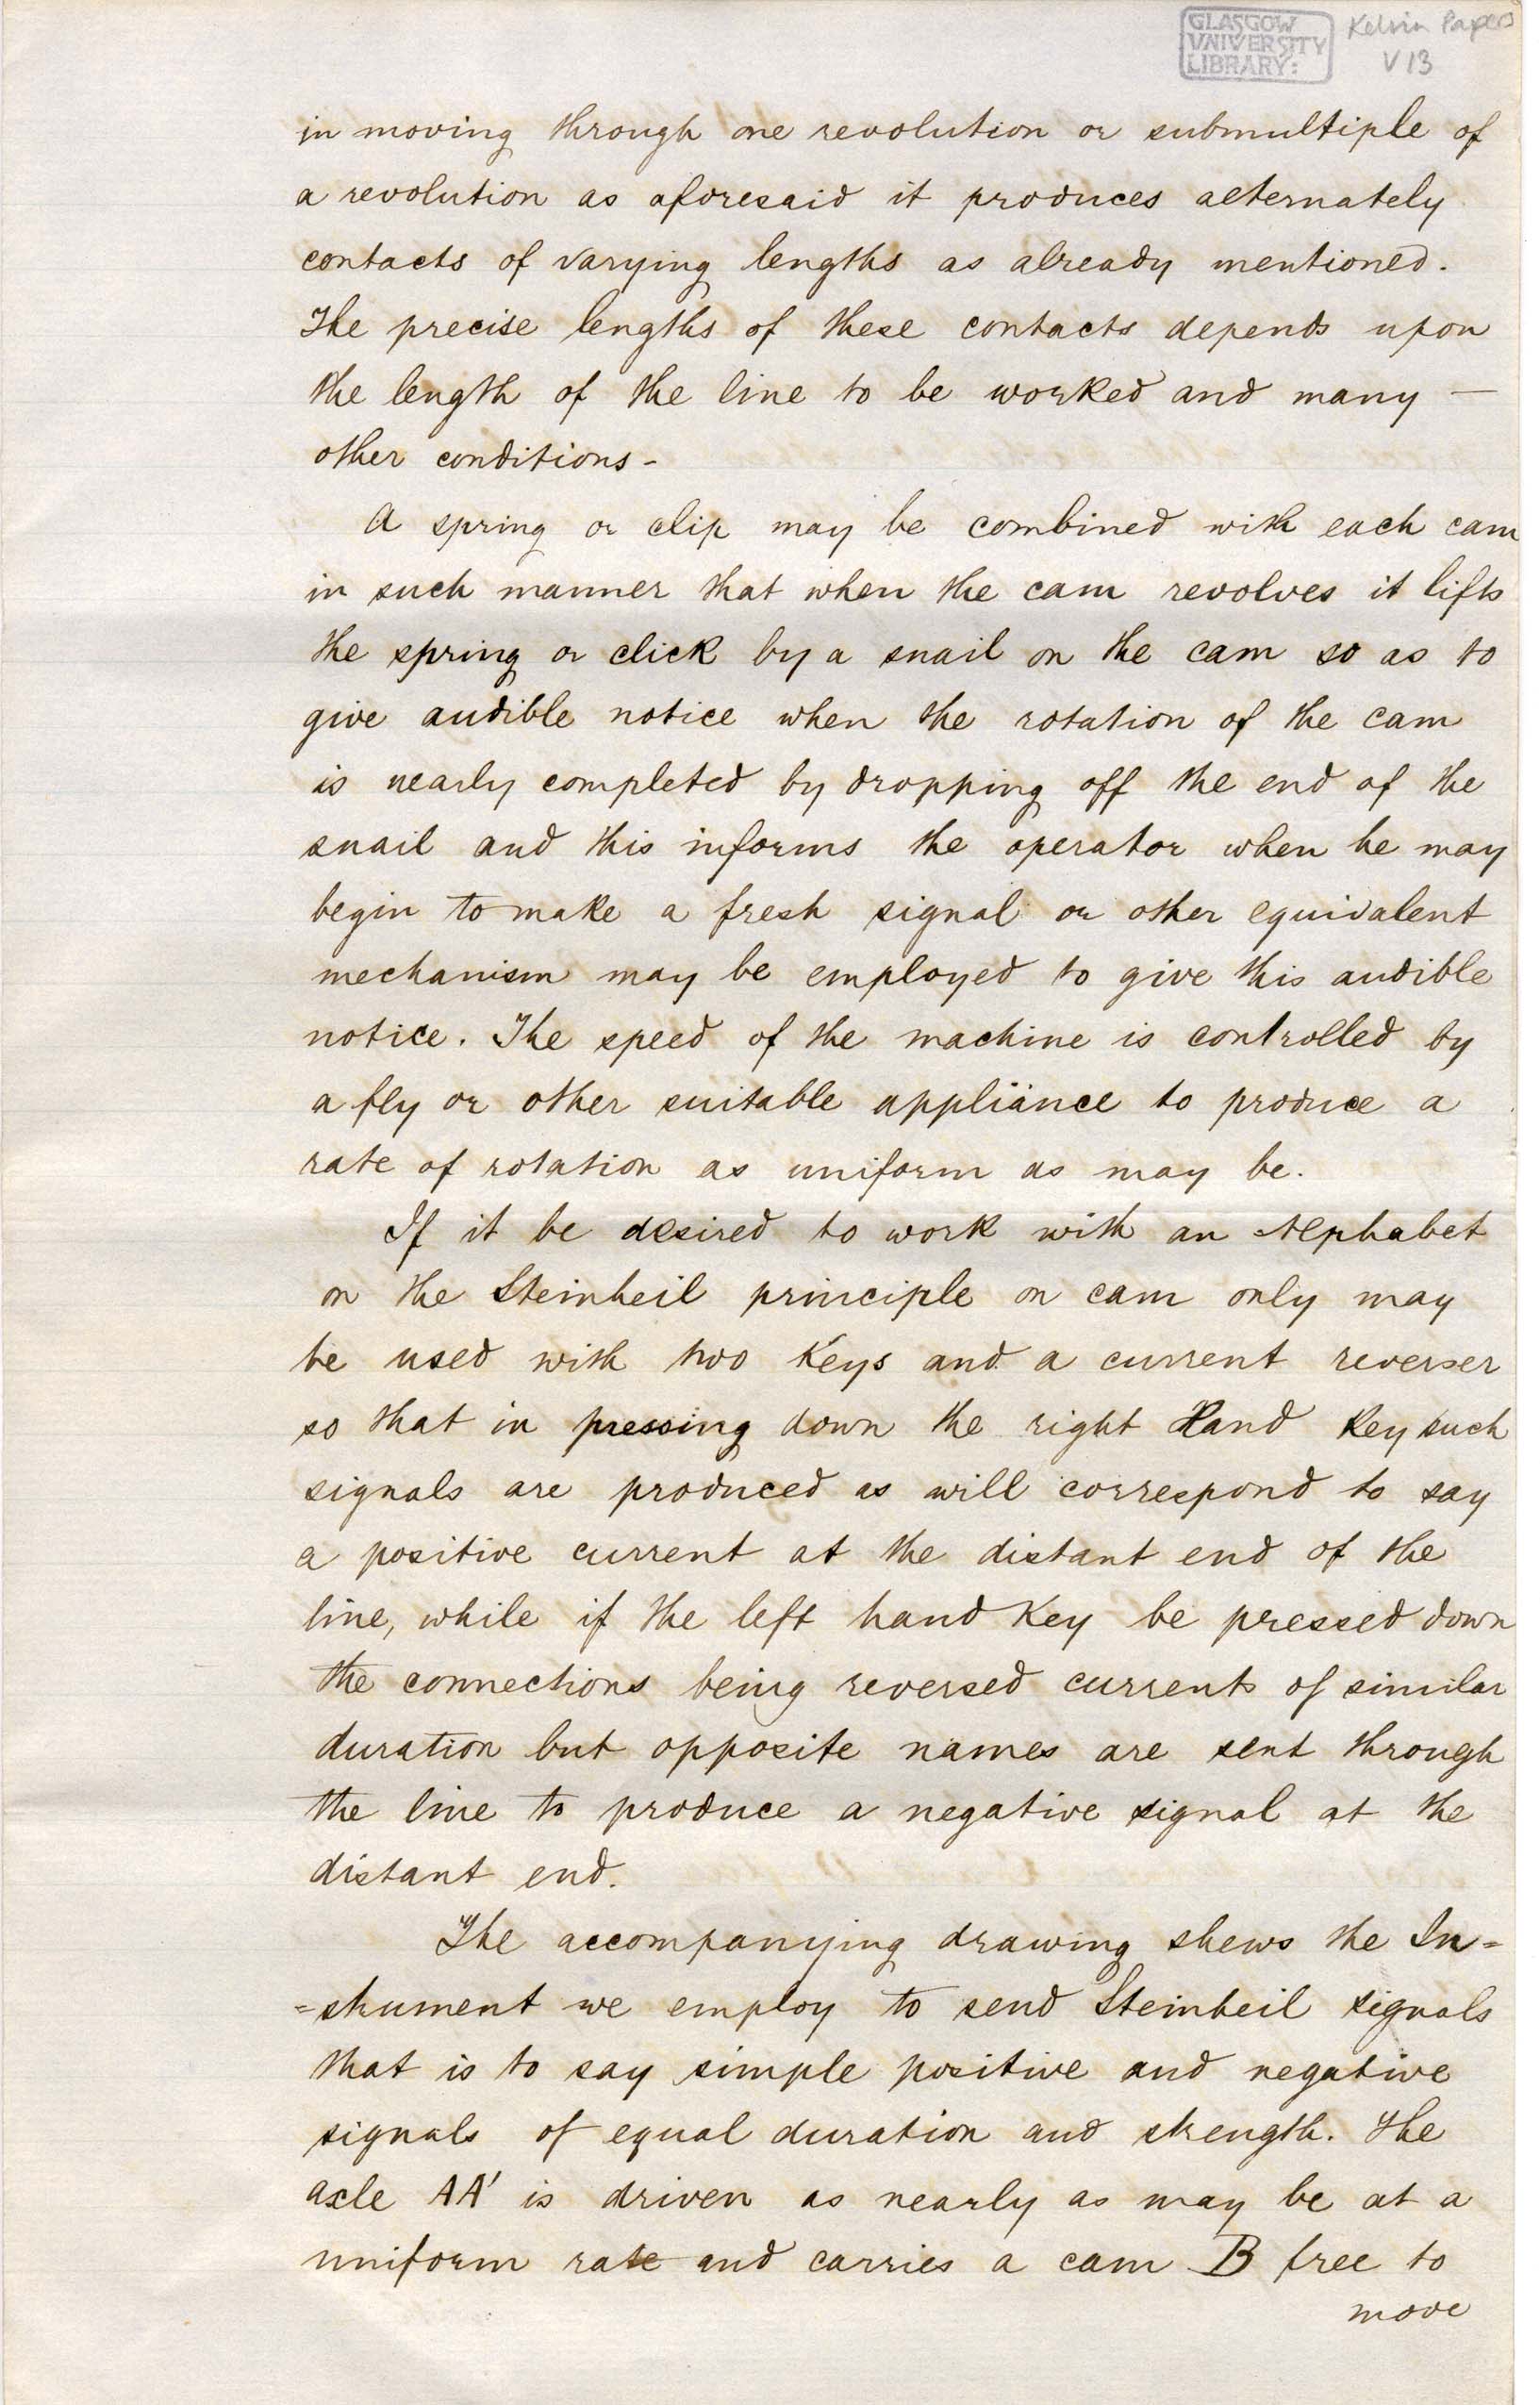 GLASGOW
UNIVERSITY
LIBRARY:
Kelvin Papers
V13
in moving through one revolution or submultiple of
a revolution as aforesaid it produces alternately
contacts of varying lengths as already mentioned.
The precise lengths of these contacts depends upon
the length of the line to be worked and many —
other conditions -
A spring or clip may be combined with each cam
in such manner that when the cam revolves it lifts
the spring or click by a snail on the cam so as to
give audible notice when the rotation of the cam
is nearly completed by dropping off the end of the
snail and this informs the operator when he may
begin to make a fresh signal or other equivalent
mechanism may be employed to give this audible
notice. The speed of the machine is controlled by
a fly or other suitable appliance to produce a
rate of rotation as uniform as may be.
If it be desired to work with an Alphabet
on the Steinheil principle on cam only may
be used with two Keys and a current reverser
so that in pressing down the right Hand Key such
signals are produced as will correspond to say
a positive current at the distant end of the
line, while if the left hand Key be pressed down
the connections being reversed currents of similar
duration but opposite names are sent through
the line to produce a negative signal at the
distant end.
The accompanying drawing shews the In=
=strument we employ to send Steinheil signals
that is to say simple positive and negative
signals of equal duration and strength. The
axle AA' is driven as nearly as may be at a
uniform rate and carries a cam B free to
move